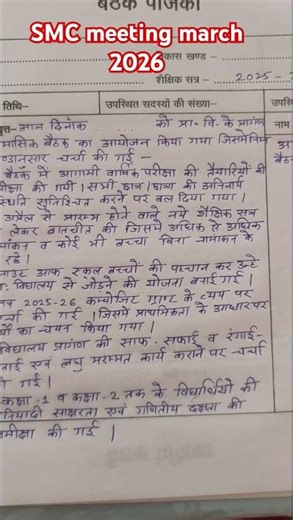 बैठक पंजिका
SMC meeting march
2026
कास खण्ड –
शैक्षिक सत्र – 2025-2
तिथि–
उपस्थित सदस्यों की संख्या–
उपस्
नाम
आज दिनांक को प्रा० वि० के प्रांगण
मासिक बैठक का आयोजन किया गया जिसमें निम्न
नुसार चर्चा की गई –
बैठक में आगामी वार्षिक परीक्षा की तैयारियों की
क्षा की गयी। सभी छात्र/छात्रा की अनिवार्य
स्थिति सुनिश्चित करने पर बल दिया गया।
अप्रैल से प्रारम्भ होने वाले नये शैक्षिक सत्र
लेकर बातचीत की जिसमें अधिक से अधिक
मांकन व कोई भी बच्चा बिना नामांकन के
रहे।
आउट आफ स्कूल बच्चों की पहचान कर उन्हें
विद्यालय से जोड़ने की योजना बनाई गई।
2025-26 कम्पोजिट ग्राण्ट के व्यय पर
र्चा की गई। जिसमें प्राथमिकता के आधार पर
र्यों का चयन किया गया।
विद्यालय प्रांगण की साफ-सफाई व रंगाई-
ताई एवं लघु मरम्मत कार्य कराने पर चर्चा
की गई।
कक्षा-1 व कक्षा-2 तक के विद्यार्थियों की
नियादी साक्षरता एवं गणितीय दक्षता की
समीक्षा की गई।